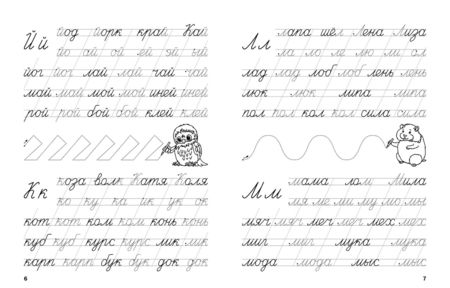 Йй йод йорк край Кай
йо ай ой ей эй ый
йог йог лай лай чай чай
май май мой мой иней иней
рой рой бой бой клей клей
Кк коза волк Катя Коля
ко ку ка ик ук ок
кот кот ком ком конь конь
куб куб курс курс лик лик
карп карп бук бук док док
6
Лл лапа шёл Лена Лиза
ла ло ле лю ми ол
лад лад лоб лоб лень лень
люк люк липа липа
пол пол кол кол сила сила
Мм мама лом Мила
мя ме ми му мо мы
мяч мяч меч меч мех мех
миг миг мука мука
мода мода мыс мыс
7